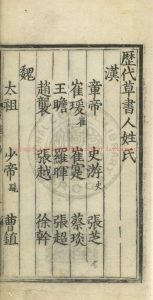 歷代草書人姓氏
漢
章帝 史游 張芝
崔瑗 崔寔 蔡琰
王瞻 羅暉 張超
趙襲 張越 徐幹
魏
太祖 少帝 曹鎮